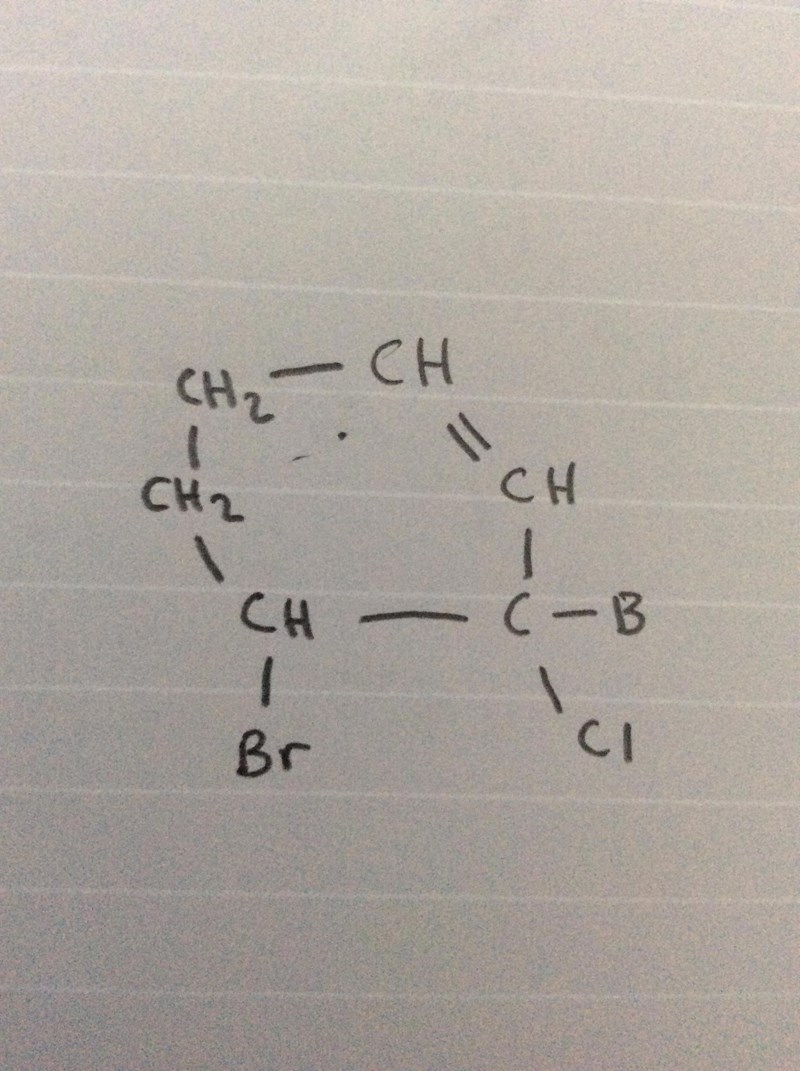 CH2 — CH
CH2
CH
CH — C — B
Br
Cl